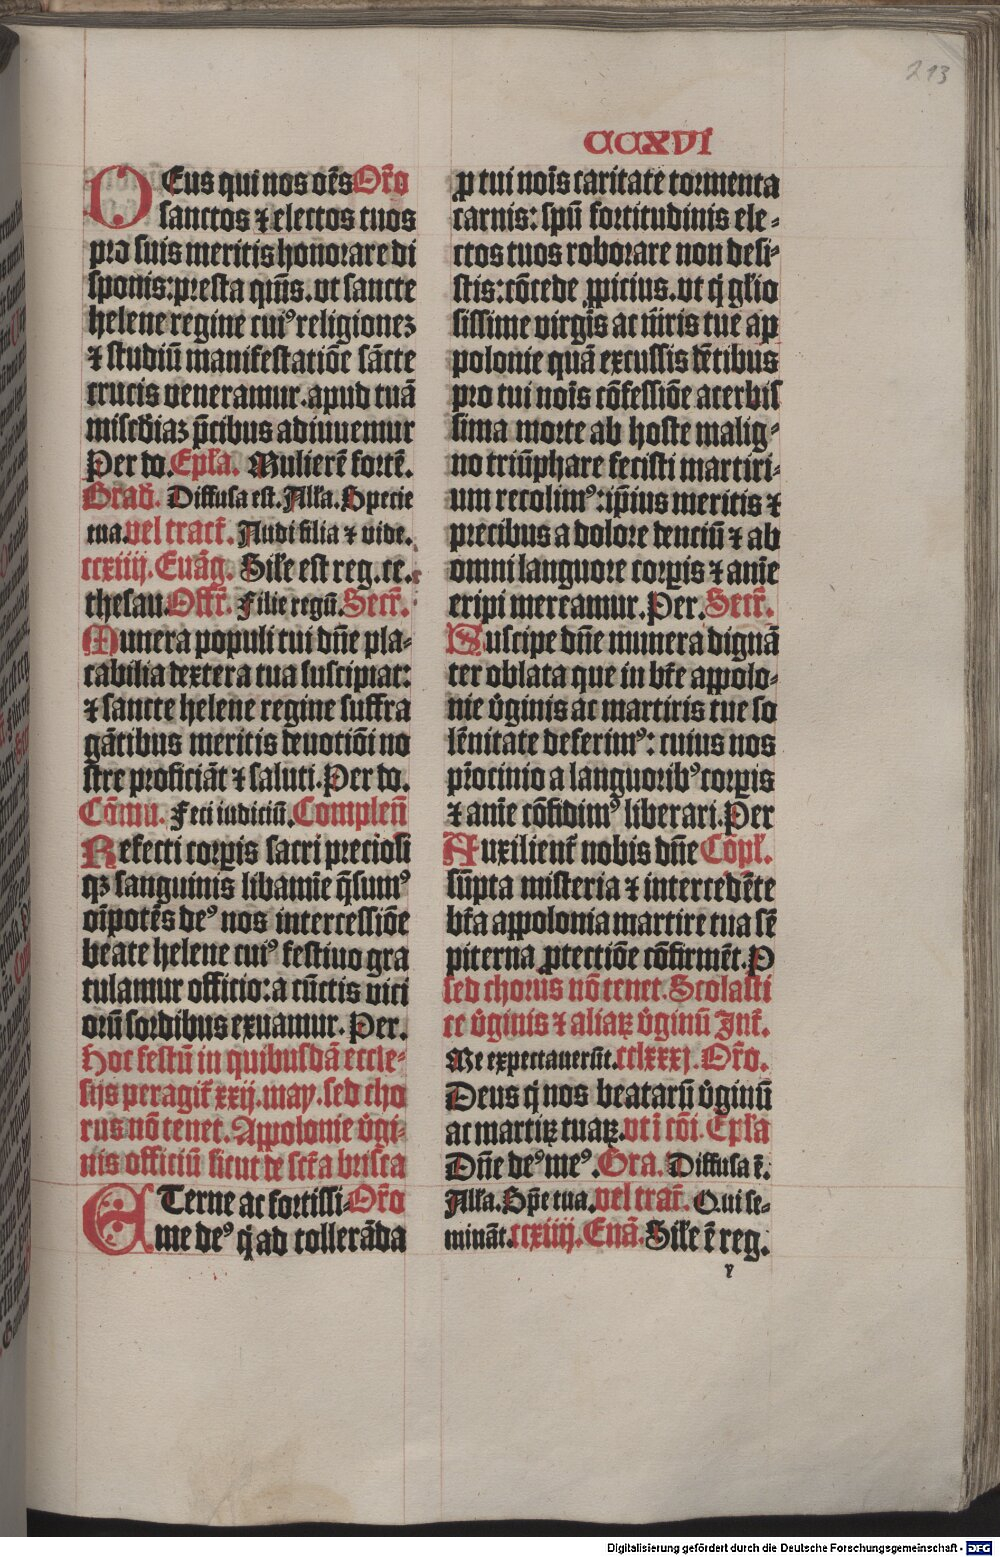 213
CCXVI
DEus qui nos oēs Or̄o
sanctos ⁊ electos tuos
pro suis meritis honorare di
sponis: presta q̄m̄s. vt sancte
helene regine cuiꝰ religionez
⁊ studiū manifestatiōe sācte
crucis veneramur. apud tuā
misc̄diaz p̄cibus adiuuemur
Per do. Epl̄a. Mulierē fortē.
Grad̄. Diffusa est. All̄a. Specie
tua. vel tract̄. Audi filia ⁊ vide.
ccxiiij. Euāg. Sil̄e est reg. ce.
thesau. Offr̄. Filie regū. Secr̄.
Munera populi tui dn̄e pla-
cabilia dextera tua suscipiat:
⁊ sancte helene regine suffra
gātibus meritis deuotiōi no
stre proficiāt ⁊ saluti. Per do.
Cōmu. Feci iudiciū. Complen̄
Refecti corꝑis sacri preciosi
qꝫ sanguinis libamīe q̄sumꝰ
oīpotēs deꝰ nos intercessiōe
beate helene cuiꝰ festiuo gra
tulamur officio: a cūctis vici
orū sordibus exuamur. Per.
Hoc festū in quibusdā eccle-
sijs peragit̄ xxij. may. sed cho
rus nō tenet. Appolonie v̄gi-
nis officiū sicut de sct̄a brisea
ETerne ac fortissi- Or̄o
me deꝰ q̄ ad tollerāda
ꝓ tui noīs caritate tormenta
carnis: spū fortitudinis ele-
ctos tuos roborare non desi-
stis: cōcede ꝓpicius. vt q̄ gl̄io
sissime virgīs ac m̄ris tue ap
polonie quā excussis dētibus
pro tui noīs cōfessiōe acerbis
sima morte ab hoste malig-
no triūphare fecisti martiri-
um recolimꝰ: ip̄ius meritis ⁊
precibus a dolore denciū ⁊ ab
omni languore corꝑis ⁊ anīe
eripi mereamur. Per. Secr̄.
Suscipe dn̄e munera dignā
ter oblata que in bt̄e appolo-
nie v̄ginis ac martiris tue so
lēnitate deferimꝰ: cuius nos
pr̄ocinio a languoribꝰ corꝑis
⁊ anīe cōfidimꝰ liberari. Per
Auxilient̄ nobis dn̄e Cōpl̄.
sūpta misteria ⁊ intercedēte
bt̄a appolonia martire tua sē
piterna ꝓtectiōe cōfirmēt. P
sed chorus nō tenet. Scolasti
ce v̄ginis ⁊ aliaꝝ v̄ginū Int̄.
Me expectauerūt. cclxxxj. Or̄o.
Deus q̄ nos beatarū v̄ginū
ac martiꝝ tuaꝝ. vt ī cōi. Epl̄a
Dn̄e deꝰ meꝰ. Gra. Diffusa ē.
All̄a. Sp̄e tua. vel trac̄. Qui se-
mināt. ccxiiij. Euā. Sil̄e ē reg.
y
Digitalisierung gefördert durch die Deutsche Forschungsgemeinschaft - DFG